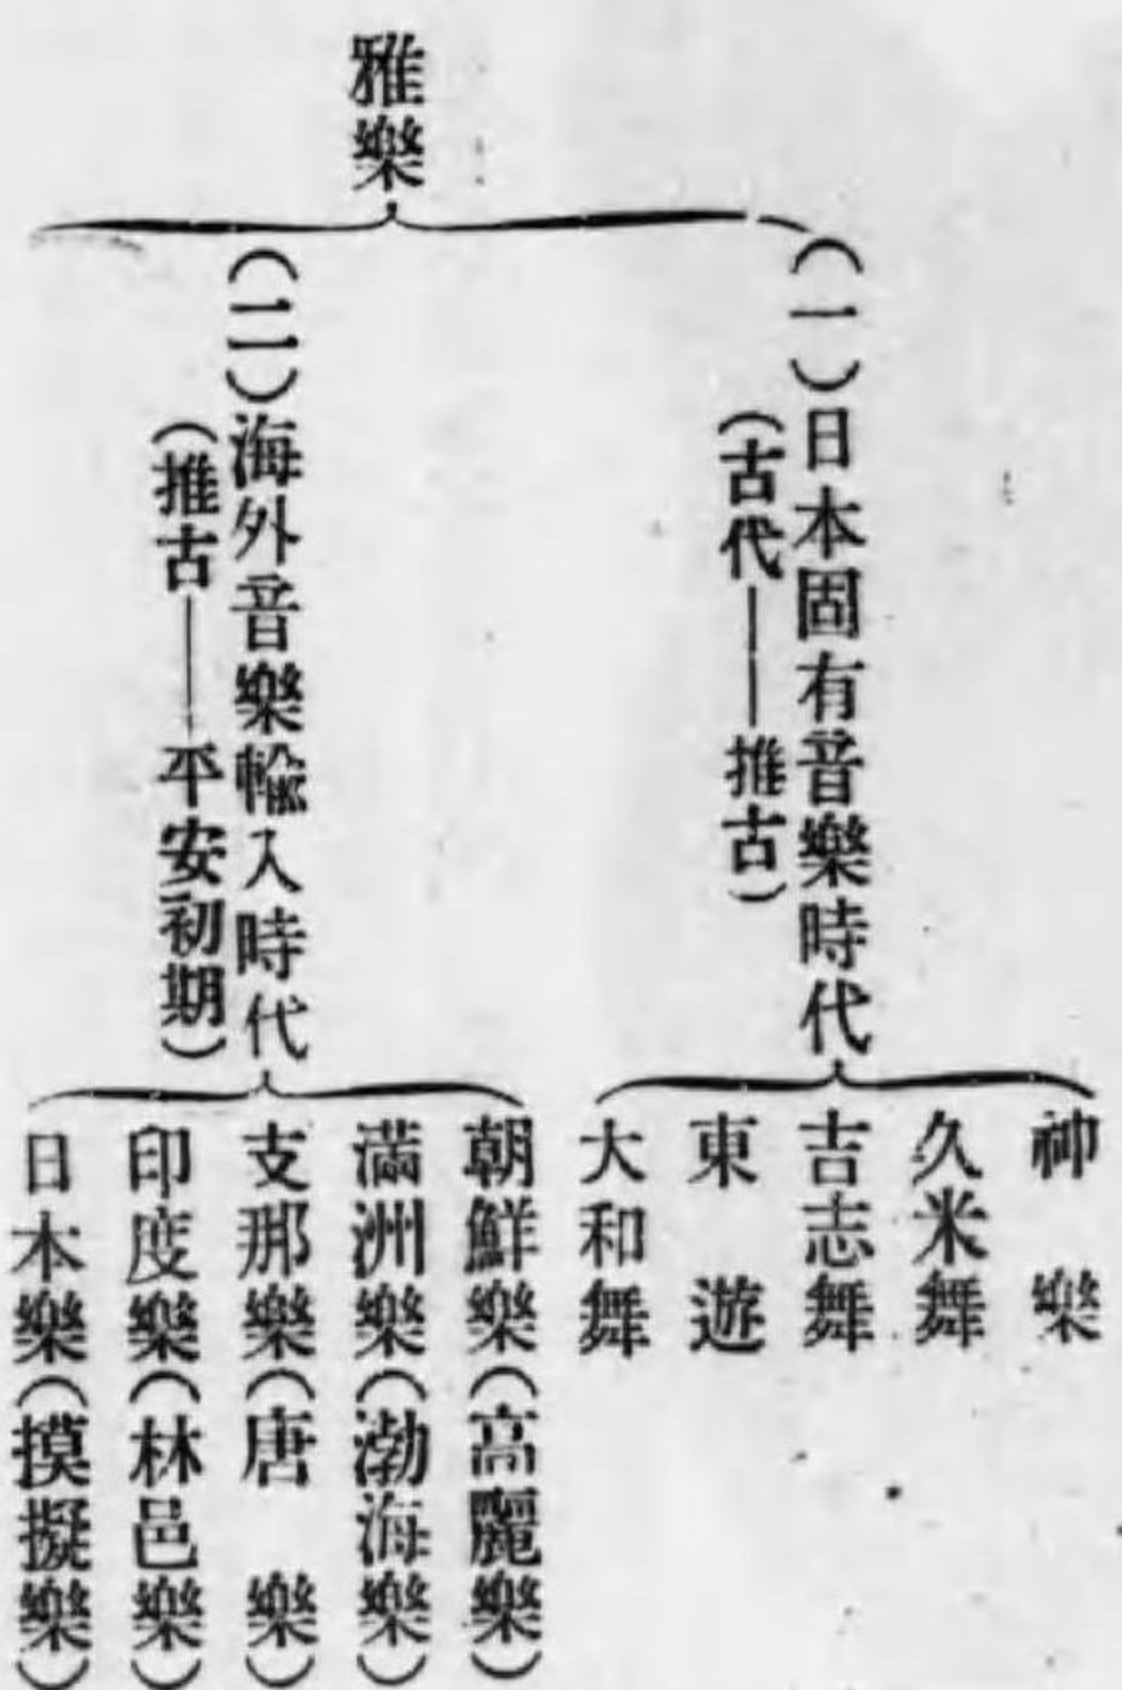 雅樂
(一)日本固有音樂時代
(古代——推古)
神樂
久米舞
吉志舞
東遊
大和舞
(二)海外音樂輸入時代
(推古——平安初期)
朝鮮樂(高麗樂)
滿洲樂(渤海樂)
支那樂(唐樂)
印度樂(林邑樂)
日本樂(摸擬樂)